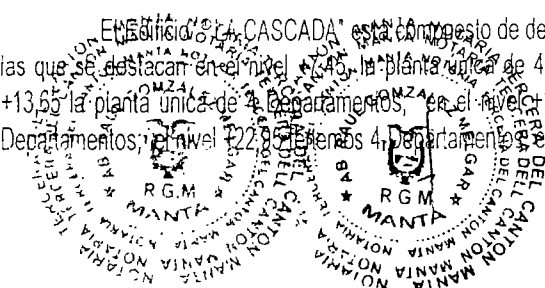 El Edificio "LA CASCADA" está compuesto de de
ias que se destacan en el nivel +7,45 la planta única de 4
+13,65 la planta única de 4 Departamentos, en el nivel +
Departamentos; el nivel +22,95 tenemos 4 Departamentos e
NOTARIA TERCERA DEL CANTON MANTA
AB. RAUL GONZALEZ MELGAR
R.G.M
MANTA
NOTARIA TERCERA DEL CANTON MANTA
AB. RAUL GONZALEZ MELGAR
R G M
MANTA